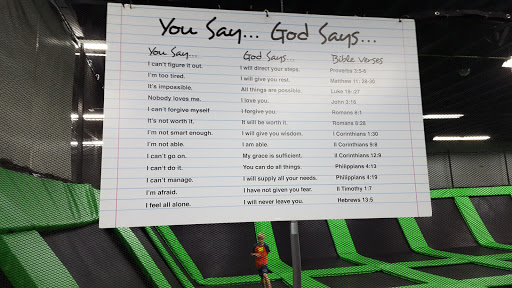 You Say... God Says...
You Say... God Says... Bible Verses
I can't figure it out. I will direct your steps. Proverbs 3:5-6
I'm too tired. I will give you rest. Matthew 11: 28-30
It's impossible. All things are possible. Luke 18: 27
Nobody loves me. I love you. John 3:16
I can't forgive myself I forgive you. Romans 8:1
It's not worth it. It will be worth it. Romans 8:28
I'm not smart enough. I will give you wisdom. I Corinthians 1:30
I'm not able. I am able. II Corinthians 9:8
I can't go on. My grace is sufficient. II Corinthians 12:9
I can't do it. You can do all things. Philippians 4:13
I can't manage. I will supply all your needs. Philippians 4:19
I'm afraid. I have not given you fear. II Timothy 1:7
I feel all alone. I will never leave you. Hebrews 13:5